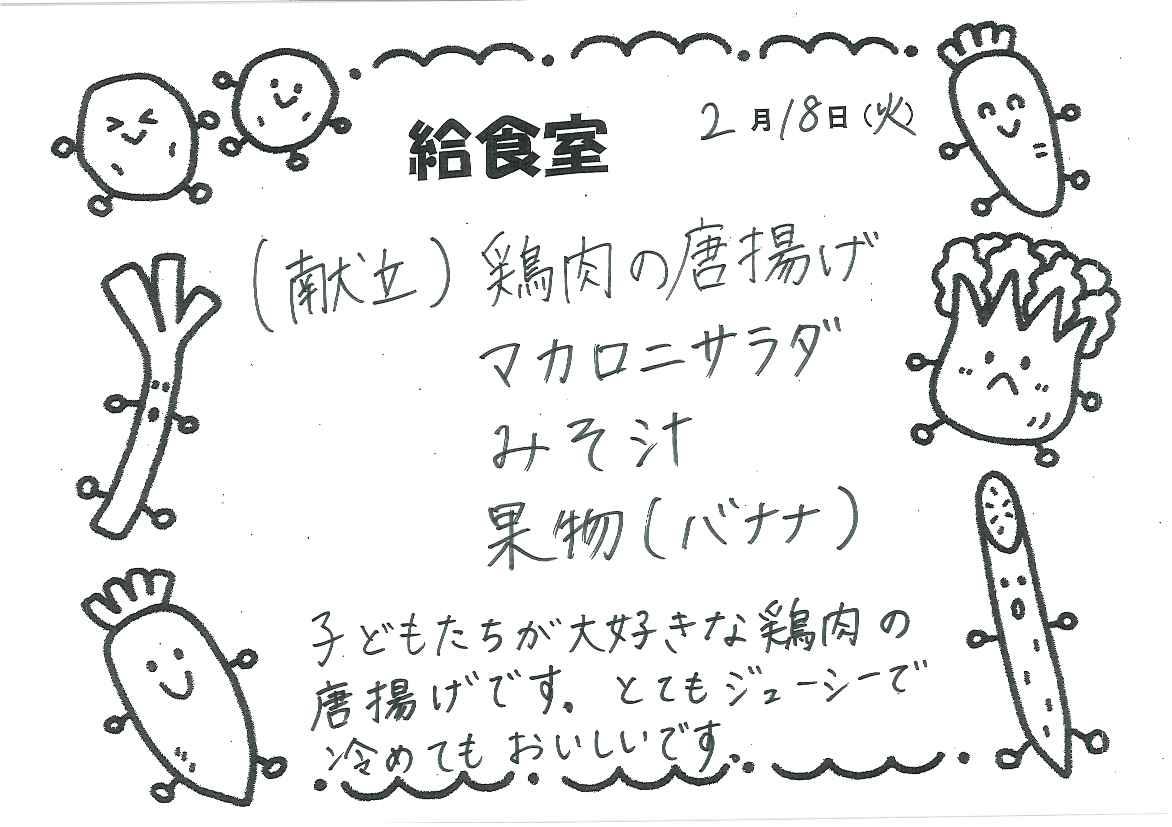 給食室
2月18日(火)
(献立) 鶏肉の唐揚げ
マカロニサラダ
みそ汁
果物(バナナ)
子どもたちが大好きな鶏肉の
唐揚げです。とてもジューシーで
冷めてもおいしいです。